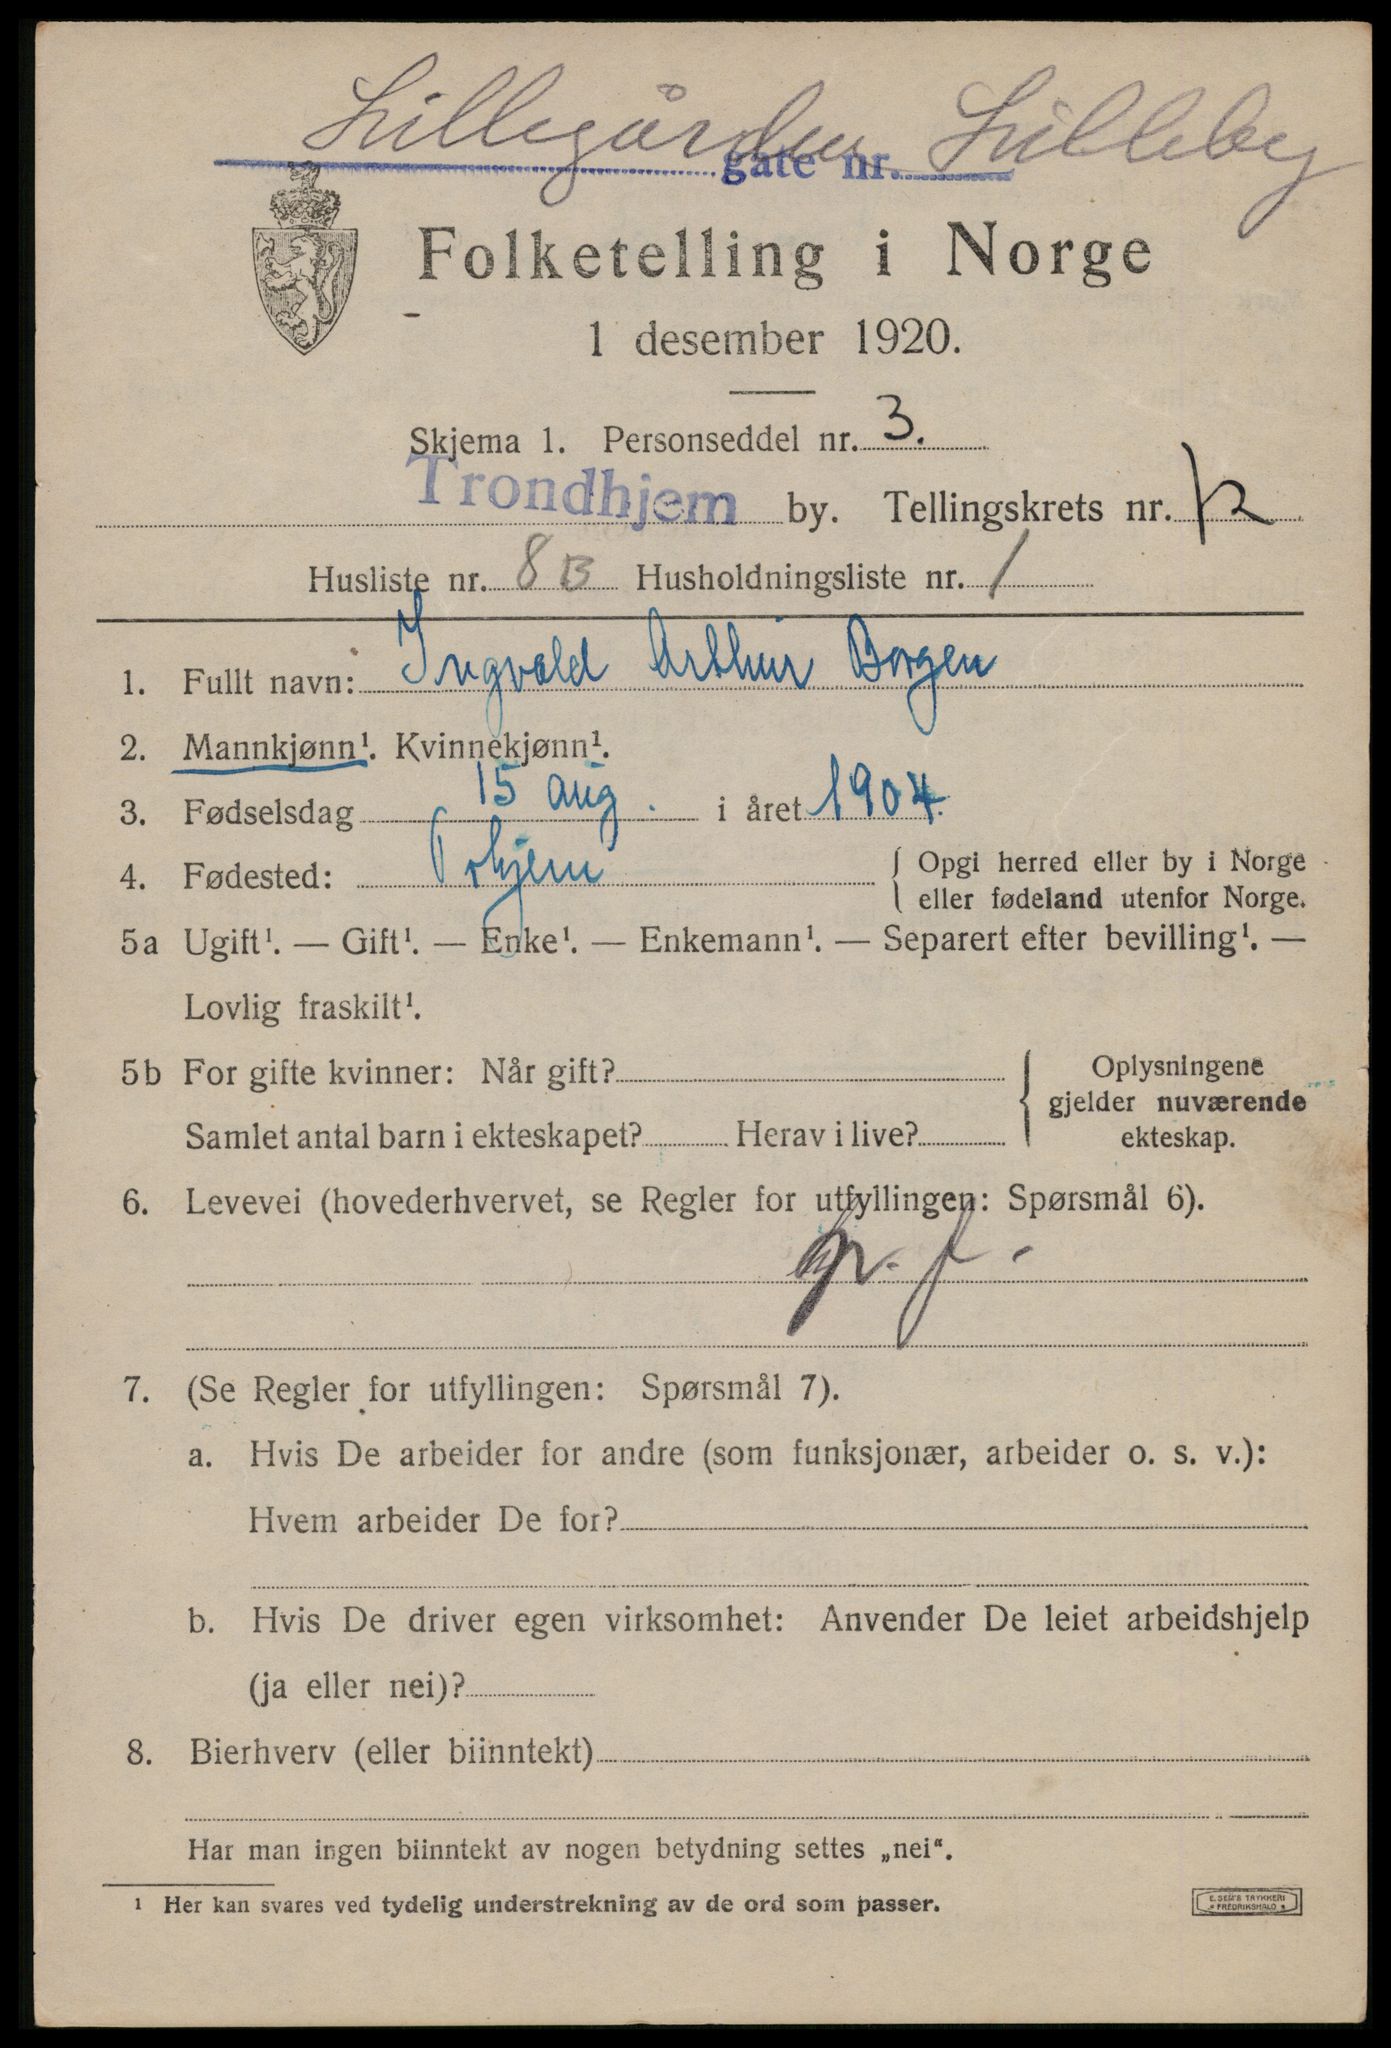 Lillegården Lilleby
gate nr.
Folketelling i Norge
1 desember 1920.
Skjema 1. Personseddel nr. 3.
Trondhjem by. Tellingskrets nr. 12
Husliste nr. 8B Husholdningsliste nr. 1
1. Fullt navn: Ingvald Arthur Borgen
2. Mannkjønn¹. Kvinnekjønn¹.
3. Fødselsdag 15 aug. i året 1904.
4. Fødested: Trhjem { Opgi herred eller by i Norge
eller fødeland utenfor Norge.
5a Ugift¹. — Gift¹. — Enke¹. — Enkemann¹. — Separert efter bevilling¹. —
Lovlig fraskilt¹.
5b For gifte kvinner: Når gift?
Samlet antal barn i ekteskapet? Herav i live?
{ Oplysningene
gjelder nuværende
ekteskap.
6. Levevei (hovederhvervet, se Regler for utfyllingen: Spørsmål 6).
7. (Se Regler for utfyllingen: Spørsmål 7).
a. Hvis De arbeider for andre (som funksjonær, arbeider o. s. v.):
Hvem arbeider De for?
b. Hvis De driver egen virksomhet: Anvender De leiet arbeidshjelp
(ja eller nei)?
8. Bierhverv (eller biinntekt)
Har man ingen biinntekt av nogen betydning settes „nei“.
¹ Her kan svares ved tydelig understrekning av de ord som passer.
E. SEM'S TRYKKERI
FREDRIKSHALD